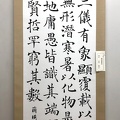 二儀有象顯覆載以
無形潛寒暑以化物
地庸愚皆識其端
賢哲罕窮其數